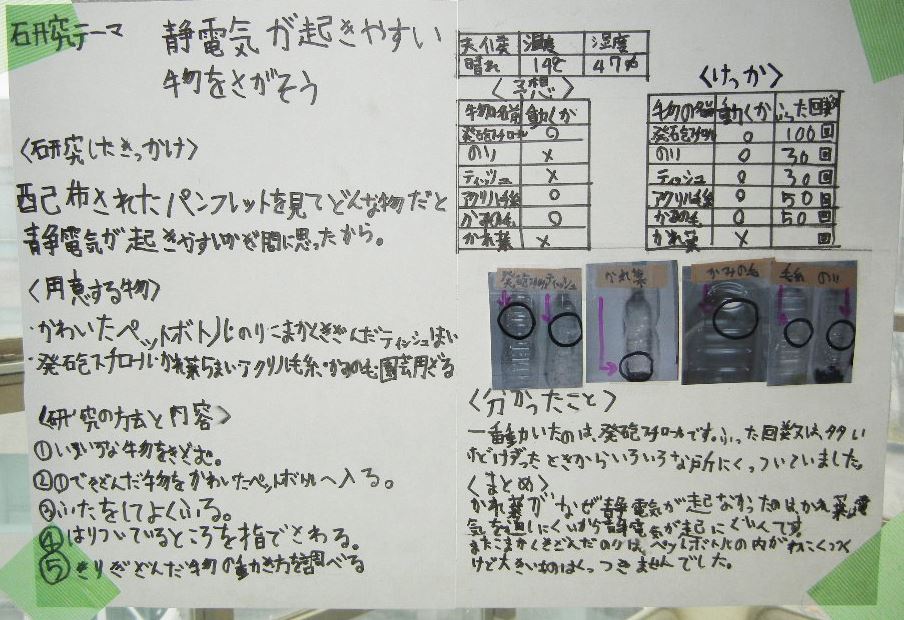 研究テーマ 静電気が起きやすい
物をさがそう
〈研究したきっかけ〉
配布されたパンフレットを見てどんな物だと
静電気が起きやすいかぎ問に思ったから。
〈用意する物〉
・かわいたペットボトル のり こまかくきざんだティッシュ はい
・発砲スチロール かれ葉 アクリル毛糸 かみの毛
〈研究の方法と内容〉
①いろいろな物をきざむ。
②①できざんだ物をかわいたペットボトルへ入る。
③ふたをしてよくふる。
④はりついているところを指でさわる。
⑤きりきざんだ物の動き方を調べる
天候 温度 湿度
晴れ 14℃ 47%
〈予想〉
物の名前 動くか
発砲スチロール ○
のり ×
ティッシュ ×
アクリル毛糸 ○
かみの毛 ○
かれ葉 ×
〈けっか〉
物の名前 動くか ふった回数
発砲スチロール ○ 100回
のり ○ 30回
ティッシュ ○ 30回
アクリル毛糸 ○ 50回
かみの毛 ○ 50回
かれ葉 × 回
発砲スチロール ティッシュ かれ葉 かみの毛 毛糸 のり
〈分かったこと〉
一番動いたのは、発砲スチロールです。ふった回数は、多い
けどけずったときからいろいろな所にくっついていました。
〈まとめ〉
かれ葉がなぜ静電気が起なかったのは、かれ葉は電
気を通しにくいから静電気が起にくいんです。
またこまかくきざんだのりは、ペットボトルの内がわにくっつく
けど大きいものはくっつきませんでした。